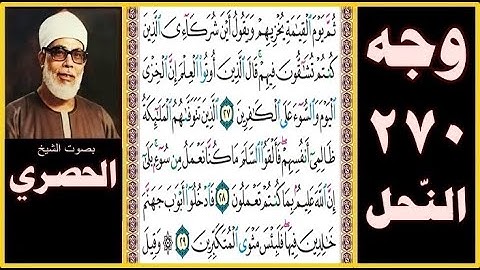 وجه
٢٧٠
النّحل
ثُمَّ يَوْمَ الْقِيَامَةِ يُخْزِيهِمْ وَيَقُولُ أَيْنَ شُرَكَاءِىَ الَّذِينَ
كُنتُمْ تُشَاقُّونَ فِيهِمْ قَالَ الَّذِينَ أُوتُوا الْعِلْمَ إِنَّ الْخِزْىَ
الْيَوْمَ وَالسُّوءَ عَلَى الْكَافِرِينَ ٢٧ الَّذِينَ تَتَوَفَّاهُمُ الْمَلَائِكَةُ
ظَالِمِى أَنفُسِهِمْ فَأَلْقَوُا السَّلَمَ مَا كُنَّا نَعْمَلُ مِن سُوءٍ بَلَى
إِنَّ اللَّهَ عَلِيمٌ بِمَا كُنتُمْ تَعْمَلُونَ ٢٨ فَادْخُلُوا أَبْوَابَ جَهَنَّمَ
خَالِدِينَ فِيهَا فَلَبِئْسَ مَثْوَى الْمُتَكَبِّرِينَ ٢٩ وَقِيلَ
بصوت الشيخ
الحصري